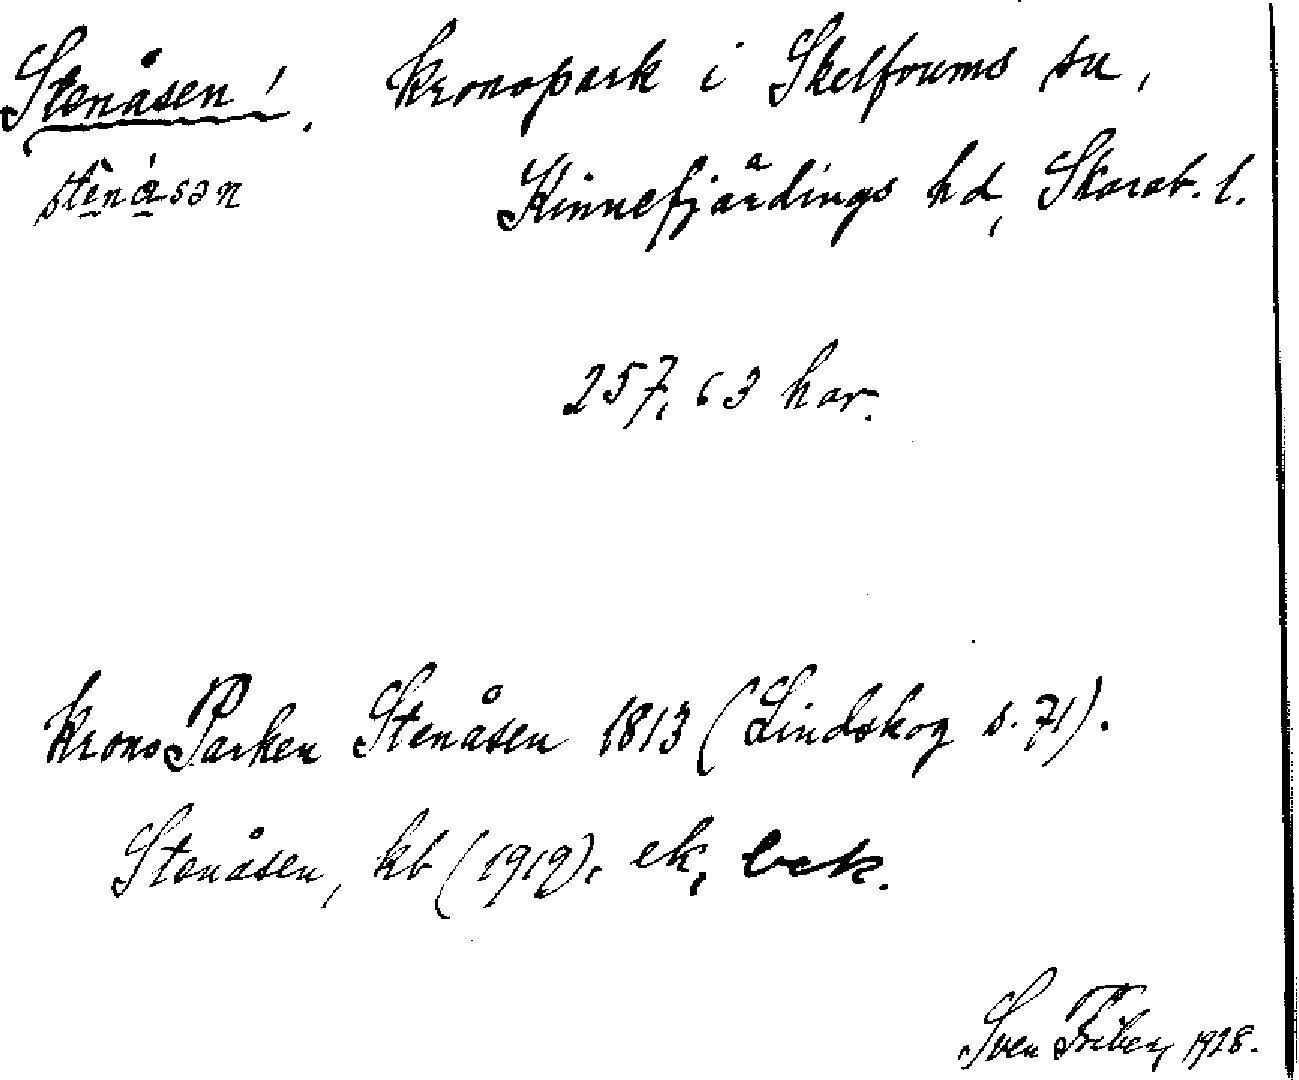 Stenåsen! kronopark i Skelfvums sn,
stenåsən Kinnefjärdings hd, Skarab. l.
257,63 har.
KronoParken Stenåsen 1813 (Lindskog s. 71).
Stenåsen, kb (1919), ek,
Sven Friberg 1928.